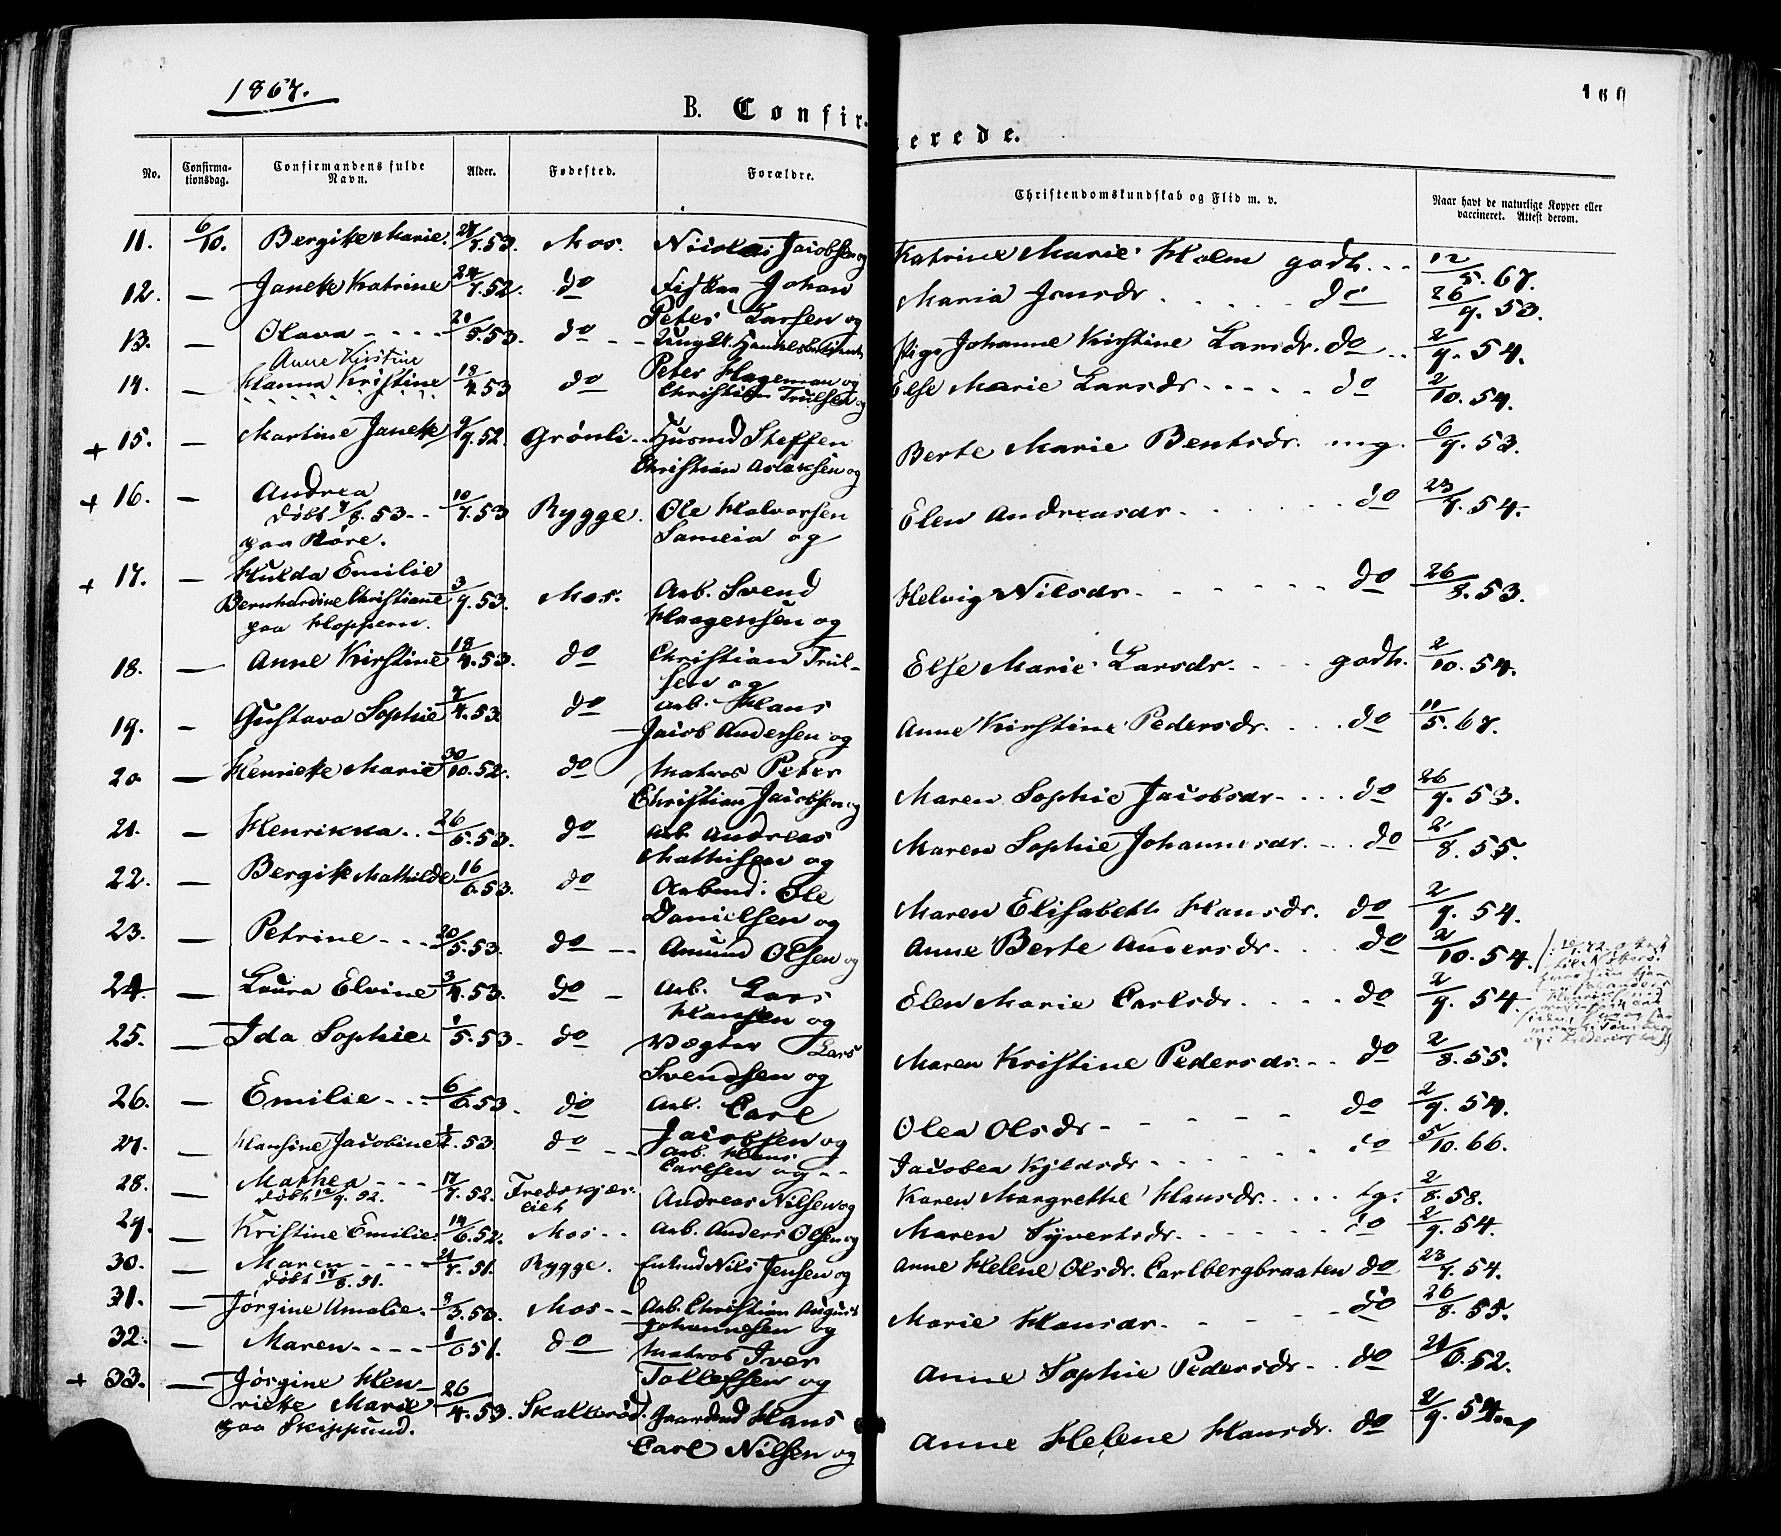 1867.
169
B. Confirmerede.
No. Confirmationsdag. Confirmandens fulde Navn. Alder. Fødested. Forældre. Christendomskundskab og Flid m. v. Naar havt de naturlige Kopper eller vaccineret. Attest derom.
11. 6/10. Bergitte Marie. 7.53. Mos. Nicolai Jacobsen og Katrine Marie Holm godt. 12/5.67.
12. — Janette Katrine 24/7.52. do Fisker Johan
Peter Larsen og Maria Jensdr do 26/9.53.
13. — Olava 5.53. do Ung
Peter Hageman og Pige Johanne Kirstine Larsdr. do 2/9.54.
14. — Anne Kirstine
Hanna Kristine 18/4.53 do Christian Trulsen og Else Marie Larsdr do 2/10.54.
+ 15. — Martine Janette 9/9.52. Grønli Husmd Steffen
Christian Aslaksen og Berte Marie Bentsdr. mg. 6/9.53.
+ 16. — Andrea
døbt 7/8.53
paa Nøre. 10/7.53 Rygge. Ole Halvorsen
Sameia og Elen Andreasdr do 23/7.54.
+ 17. — Hulda Emilie
Bernhardine Christiane
paa Hoppern. 3/9.53. Mos. Arb. Svend
Haagensen og Helvig Nilsdr do 26/8.53.
18. — Anne Kirstine 18/4.53. do Christian Trul-
sen og Else Marie Larsdr. godt. 2/10.54.
19. — Gustava Sophie 7/4.53. do Arb. Hans
Jacob Andersen og Anne Kirstine Pedersdr. do 11/5.67.
20 — Henriette Marie 30/10.52. do Matros Peter
Christian Jacobsen og Maren Sophie Jacobsdr do 26/9.53.
21. — Henrikka 26/5.53. do Arb. Andreas
Mathisen og Maren Sophie Johannesdr. do 2/8.55.
22. — Bergitte Mathilde 16/6.53. do Arbmd: Ole
Danielsen og Maren Elisabeth Hansdr. do 2/9.54.
23. — Petrine 20/5.53. do Amund Olsen og Anne Berte Andersdr. do 2/10.54.
24 — Laura Elvine 3/4.53. do Arb. Lars
Hansen og Elen Marie Carlsdr. do 2/9.54
25. — Ida Sophie 1/5.53. do Vægter Lars
Svendsen og Maren Kristine Pedersdr. do 2/8.55.
26. — Emilie 6/6.53. do Arb. Carl
Jacobsen og Olea Olsdr do 2/9.54.
27. — Hansine Jacobine .53. do Arb. Hans
Carlsen og Jacobea do /10.66.
28. — Mathea
døbt 12/9.52. 17/7.52. Fredskjær
Andreas Nilsen og Karen Margrethe Hansdr. tg. 2/8.58.
29. — Kristine Emilie. 14/6.52. Mos Arb. Anders Olsen og Maren Syvertsdr. do 2/9.54
30. — Maren
døbt 17/8.51. 21/7.51. Rygge. Nils Jensen og Anne Helene Olsdr. Carlbergbraaten do 23/7.54.
31. — Jørgine Amalie. 9/3.53. Mos Arb. Christian August
Johannesen og Marie Hansdr. do 26/8.55.
32. — Maren 1/6 51. do Matros Iver
Tollefsen og Anne Sophie Pedersdr do 6.52.
+ 33. — Jørgine Hen-
riette Marie
paa Skippund. 26/4.53. Skallerød. Gaardmd Hans
Carl Nilsen og Anne Helene Hansdr. do 2/9.54